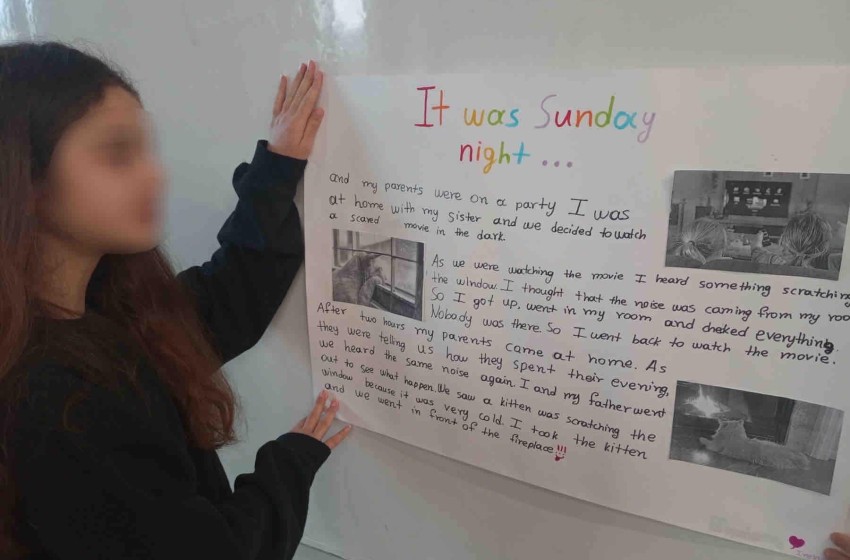 It was Sunday
night ...
and my parents were on a party I was
at home with my sister and we decided to watch
a scared movie in the dark.
As we were watching the movie I heard something scratching
the window. I thought that the noise was caming from my
So I got up, went in my room and cheked everything.
Nobody was there. So I went back to watch the movie.
After two hours my parents came at home. As
they were telling us how they spent their evening,
we heard the same noise again. I and my father went
out to see what happen. We saw a kitten was scratching the
window because it was very cold. I took the kitten
and we went in front of the fireplace!!!